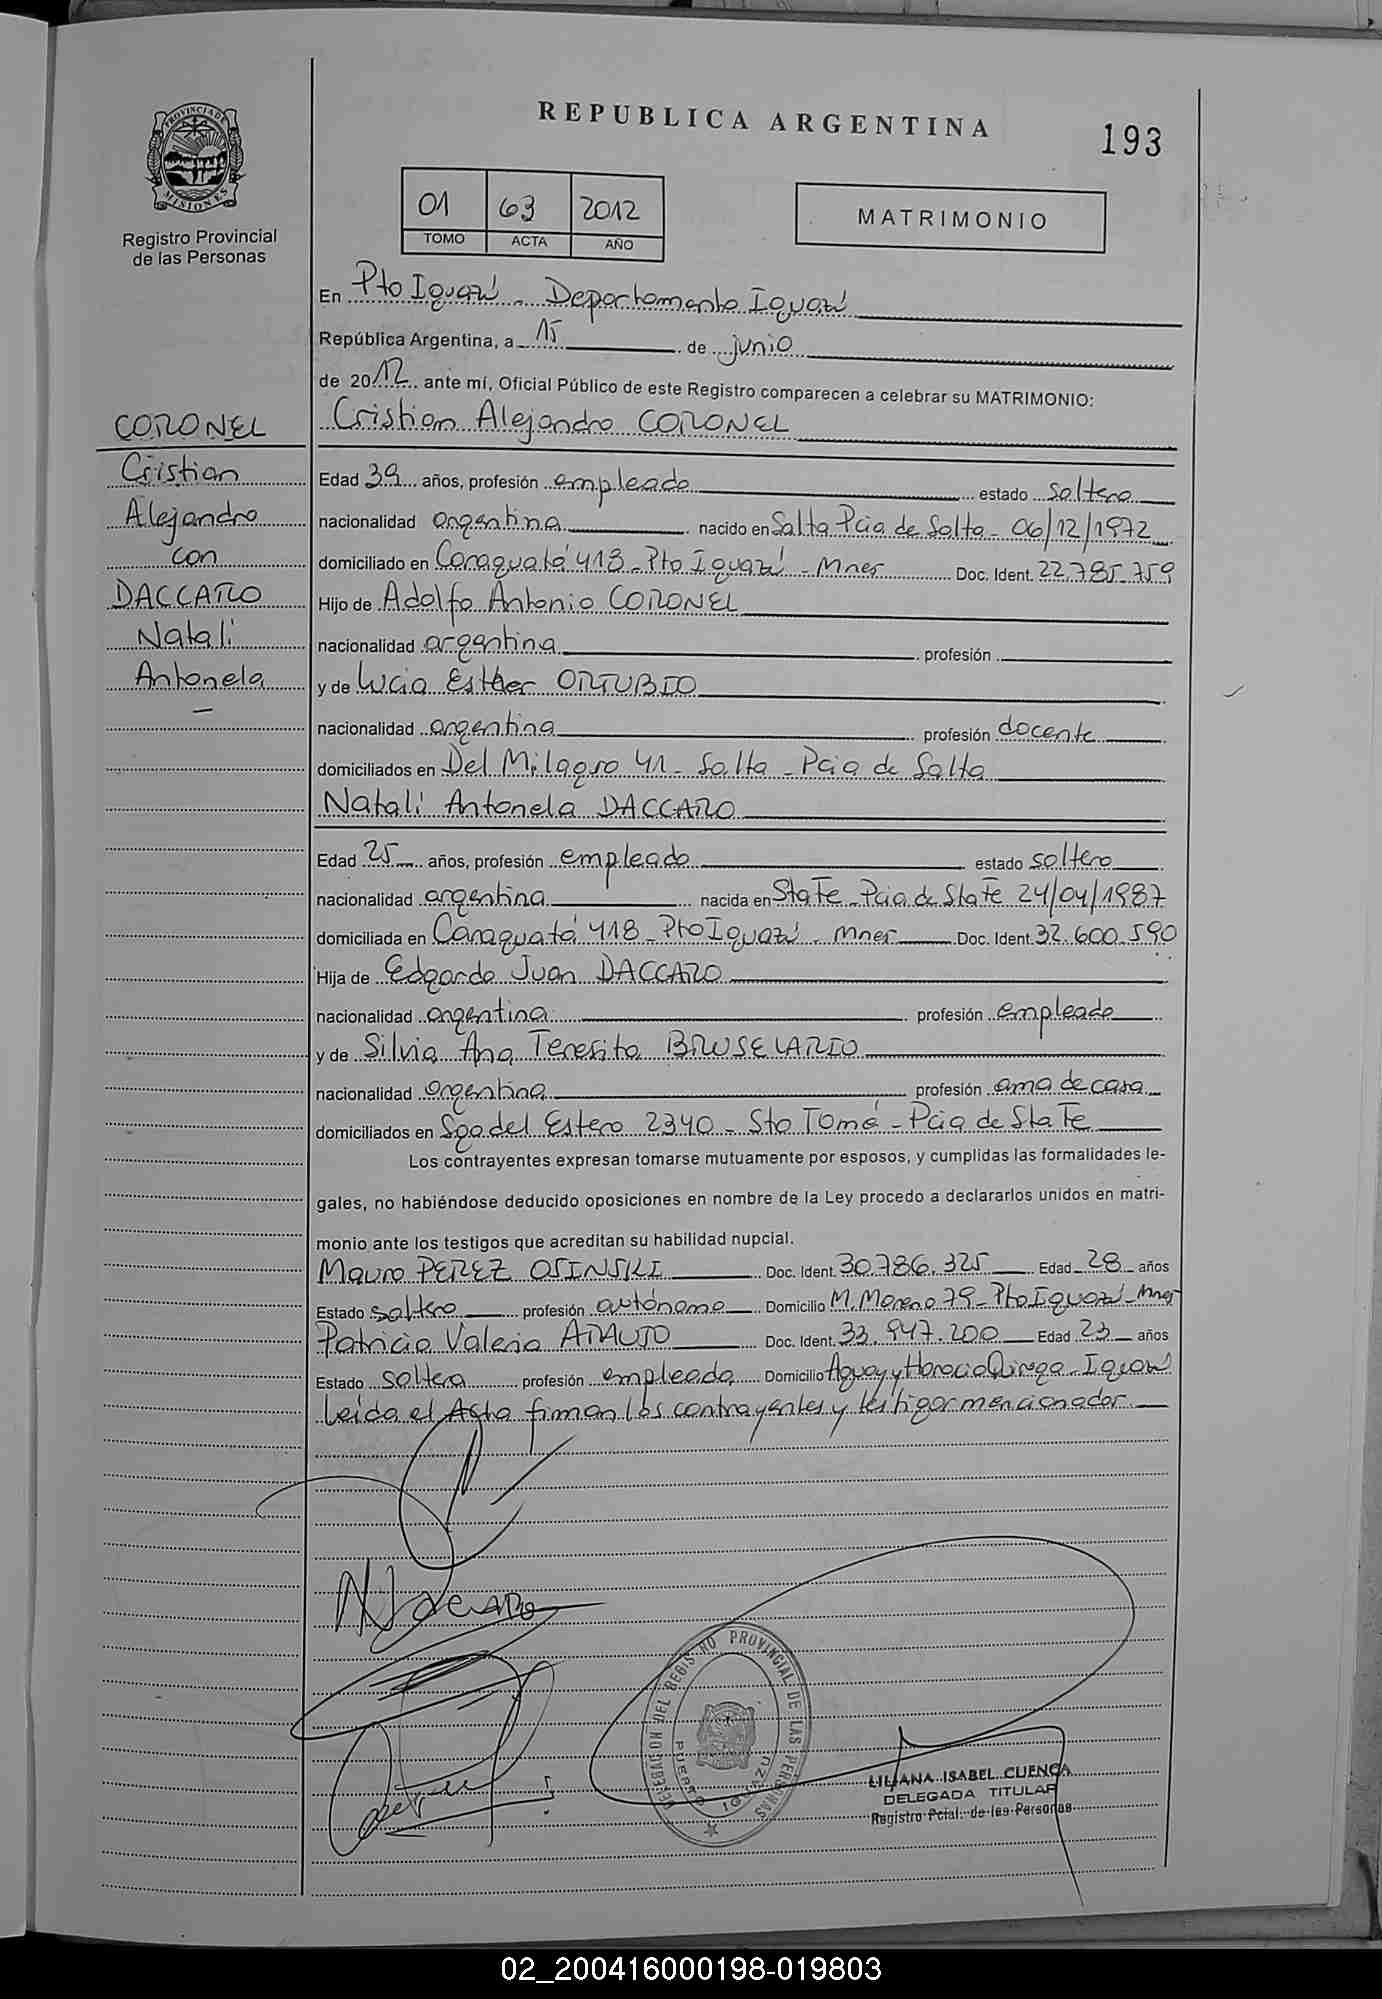 REPUBLICA ARGENTINA
193
PROVINCIA DE MISIONES
Registro Provincial
de las Personas
01 63 2012
TOMO ACTA AÑO
MATRIMONIO
En Pto Iguazú - Departamento Iguazú
República Argentina, a 15 de junio
de 2012 ante mí, Oficial Público de este Registro comparecen a celebrar su MATRIMONIO:
Cristian Alejandro CORONEL
CORONEL
Cristian
Alejandro
con
DACCARO
Natalí
Antonela
Edad 39 años, profesión empleado estado soltero
nacionalidad argentina nacido en Salta Pcia de Salta - 06/12/1972
domiciliado en Caraguatá 418 - Pto Iguazú - Mnes Doc. Ident. 22.785.759
Hijo de Adolfo Antonio CORONEL
nacionalidad argentina profesión
y de Lucia Esther ORTUBIO
nacionalidad argentina profesión docente
domiciliados en Del Milagro 41 - Salta - Pcia de Salta
Natalí Antonela DACCARO
Edad 25 años, profesión empleada estado soltera
nacionalidad argentina nacida en Sta Fe - Pcia de Sta Fe 24/04/1987
domiciliada en Caraguatá 418 - Pto Iguazú - Mnes Doc. Ident. 32.600.590
Hija de Edgardo Juan DACCARO
nacionalidad argentina profesión empleado
y de Silvia Ana Teresita BRUSELARIO
nacionalidad argentina profesión ama de casa
domiciliados en Sgo del Estero 2340 - Sto Tomé - Pcia de Sta Fe
Los contrayentes expresan tomarse mutuamente por esposos, y cumplidas las formalidades le-
gales, no habiéndose deducido oposiciones en nombre de la Ley procedo a declararlos unidos en matri-
monio ante los testigos que acreditan su habilidad nupcial.
Mauro PEREZ OSINSKI Doc. Ident. 30.786.325 Edad 28 años
Estado soltero profesión autónomo Domicilio M. Moreno 79 - Pto Iguazú - Mnes
Patricia Valeria ARAUJO Doc. Ident. 33.947.200 Edad 23 años
Estado soltera profesión empleada Domicilio Aguay y Horacio Quiroga - Iguazú
Leída el Acta firman los contrayentes y testigos mencionados.
N Daccaro
DELEGACION DEL REGISTRO PROVINCIAL DE LAS PERSONAS
PUERTO IGUAZU
LILIANA ISABEL CUENCA
DELEGADA TITULAR
Registro Pcial. de las Personas
02_200416000198-019803